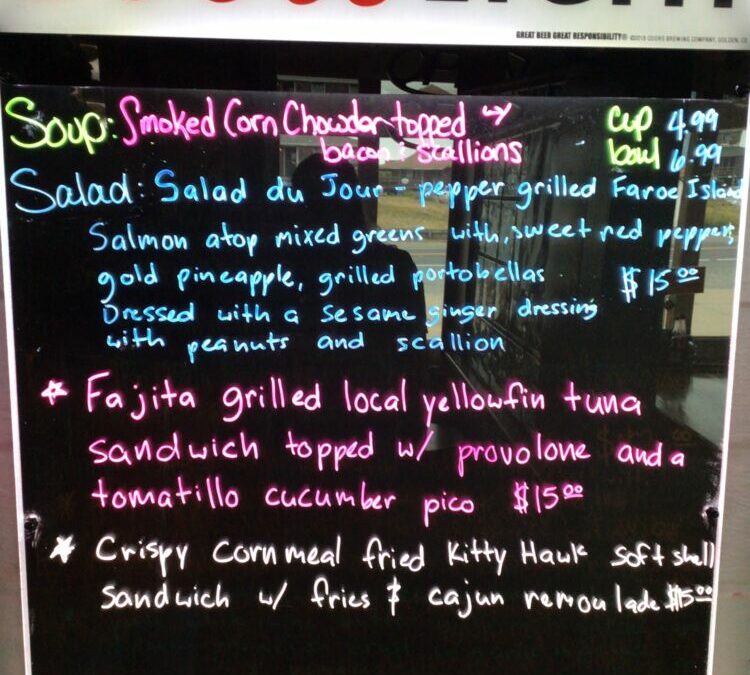 GREAT BEER GREAT RESPONSIBILITY® ©2018 COORS BREWING COMPANY, GOLDEN, CO
Soup: Smoked Corn Chowder topped cup 4.99
bacon & scallions bowl 6.99
Salad: Salad du Jour - pepper grilled Faroe Island
Salmon atop mixed greens with, sweet red peppers,
gold pineapple, grilled portobellas $15.00
Dressed with a sesame ginger dressing
with peanuts and scallion
* Fajita grilled local yellowfin tuna
sandwich topped w/ provolone and a
tomatillo cucumber pico $15.00
* Crispy Cornmeal fried Kitty Hawk soft shell
sandwich w/ fries & cajun remoulade $15.00